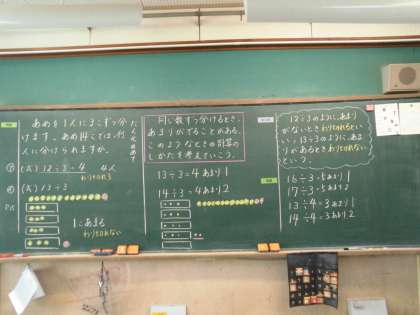 あめを1人に3こずつ分
けます。あめ
人に分けられますか。
(式) 12÷3=4 4人
わりきれる
(式) 13÷3
1こあまる
わりきれない
同じ数ずつ分けるとき、
あまりがでることがある。
このようなときの計算の
しかたを考えていこう。
13÷3=4あまり1
14÷3=4あまり2
12÷3のように、あまり
がないときわりきれるとい
い、13÷3のように、あま
りがあるときわりきれない
という。
16÷3=5あまり1
17÷3=5あまり2
13÷4=3あまり1
14÷4=3あまり2